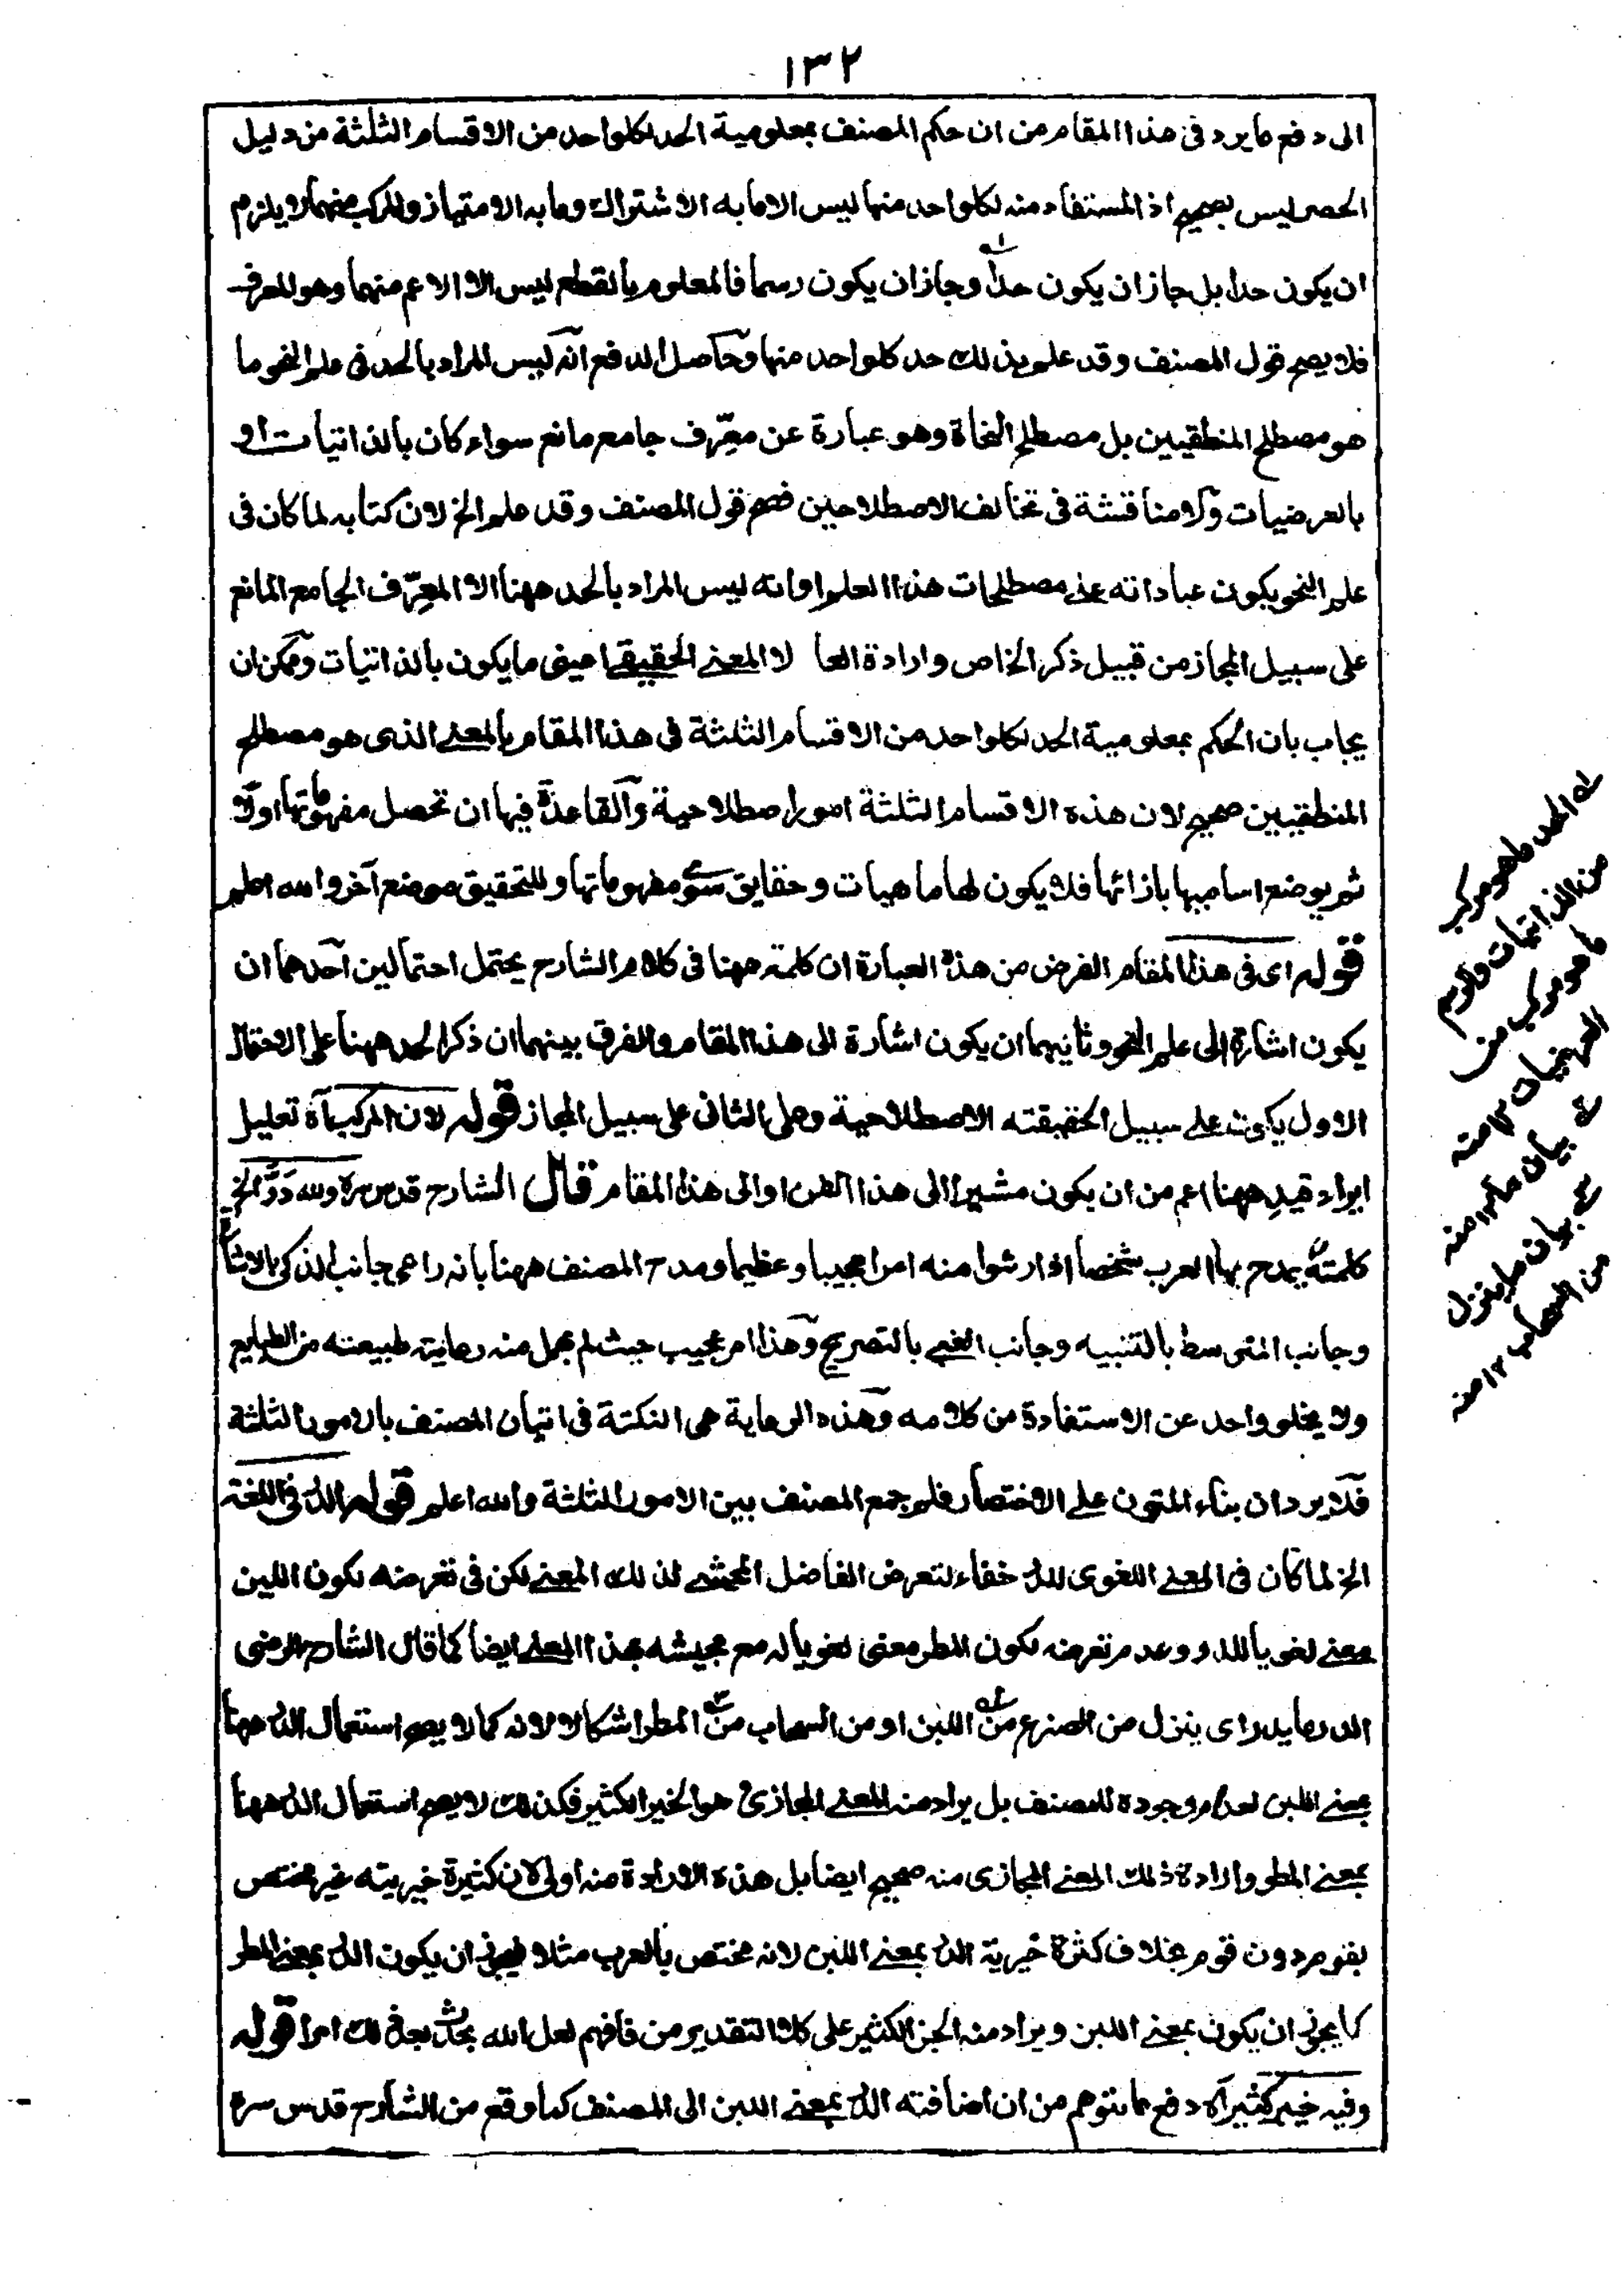 ١٣٢
الى دفع ما يرد فى هذا المقام من ان حكم المصنف بمعلومية الحد لكل واحد من الاقسام الثلثة من دليل
الحصر ليس بصحيح اذ المستفاد منه لكل واحد منها ليس الا ما به الاشتراك وما به الامتياز والمركب منهما لا يلزم
ان يكون حدا بل جاز ان يكون حدا وجاز ان يكون رسما فالمعلوم بالقطع ليس الا الاعم منهما وهو المعرف
فلا يصح قول المصنف وقد علم بذلك حد كل واحد منها وحاصل الدفع انه ليس المراد بالحد فى علم النحو ما
هو مصطلح المنطقيين بل مصطلح النحاة وهو عبارة عن معرّف جامع مانع سواء كان بالذاتيات او
بالعرضيات ولا مناقشة فى تخالف الاصطلاحين فصح قول المصنف وقد علم الخ لان كتابه لما كان فى
علم النحو يكون عباداته على مصطلحات هذا العلم او انه ليس المراد بالحد ههنا الا المعرّف الجامع المانع
على سبيل المجاز من قبيل ذكر الخاص وارادة العا لا المعنى الحقيقى اعنى ما يكون بالذاتيات ويمكن ان
يجاب بان الحكم بمعلومية الحد لكل واحد من الاقسام الثلثة فى هذا المقام بالمعنى الذى هو مصطلح
المنطقيين صحيح لان هذه الاقسام الثلثة امور اصطلاحية والقاعدة فيها ان تحصل مفهوماتها اولا
ثم يوضع اساميها بازائها فلا يكون لها ماهيات وحقايق سوى مفهوماتها وللتحقيق موضع آخر والله اعلم
قوله اى فى هذا المقام الغرض من هذه العبارة ان كلمة ههنا فى كلام الشارح يحتمل احتمالين احدهما ان
يكون اشارة الى علم النحو وثانيهما ان يكون اشارة الى هذا المقام والفرق بينهما ان ذكر الحد ههنا على الاحتمال
الاول يكون على سبيل الحقيقته الاصطلاحية وعلى الثانى على سبيل المجاز قوله لان المركب آه تعليل
ايراد قيد ههنا اعم من ان يكون مشيرا الى هذا الفن او الى هذا المقام قال الشارح قدس سره ولله درّ الخ
كلمة يمدح بها العرب شخصا اذا رئوا منه امرا عجيبا وعظيما ومدح المصنف ههنا بانه راعى جانب الذكى بالاشا
وجانب المتوسط بالتنبيه وجانب الغبى بالتصريح وهذا امر عجيب حيث لم يهمل منه رعاية طبيعته من الطبايع
ولا يخلو واحد عن الاستفادة من كلامه وهذه الرعاية هى النكتة فى اتيان المصنف بالامور الثلثة
فلا يرد ان بناء المتون على الاختصار فلم جمع المصنف بين الامور الثلثة والله اعلم قوله الدر فى اللغة
الخ لما كان فى المعنى اللغوى للدر خفاء لتعرض الفاضل المحشى لذلك المعنى لكن فى تعرضه لكون اللبن
معنى لغويا للدر وعدم تعرضه لكون المطر معنى لغويا له مع مجيئه بهذا المعنى ايضا كما قال الشارح الرضى
الدر ما يدر اى ينزل من الضرع من اللبن او من السحاب من المطر اشكالا لانه كما لا يصح استعمال الدر ههنا
بمعنى اللبن لعدم وجوده للمصنف بل يراد منه المعنى المجازى هو الخير الكثير فكذلك لا يصح استعمال الدر ههنا
بمعنى المطر وارادة ذلك المعنى المجازى منه صحيح ايضا بل هذه الارادة منه اولى لان كثيرة خيريته غير مختص
بقوم دون قوم بخلاف كثرة خيرية الدر بمعنى اللبن لانه مختص بالعرب مثلا فيجوز ان يكون الدر بمعنى المطر
كما يجوز ان يكون بمعنى اللبن ويراد منه الخير الكثير على كلا التقديرين فافهم لعل الله يحدث بعد ذلك امرا قوله
وفيه خير كثير آه دفع ما يتوهم من ان اضافته الدر بمعنى اللبن الى المصنف كما وقع من الشارح قدس سره
له الحد ما هو مركب
من الذاتيات والرسم
ما هو مركب من
العرضيات ١٢ منه
بيان ما ١٢ منه
بيان ما ينزل
من السحاب ١٢ منه